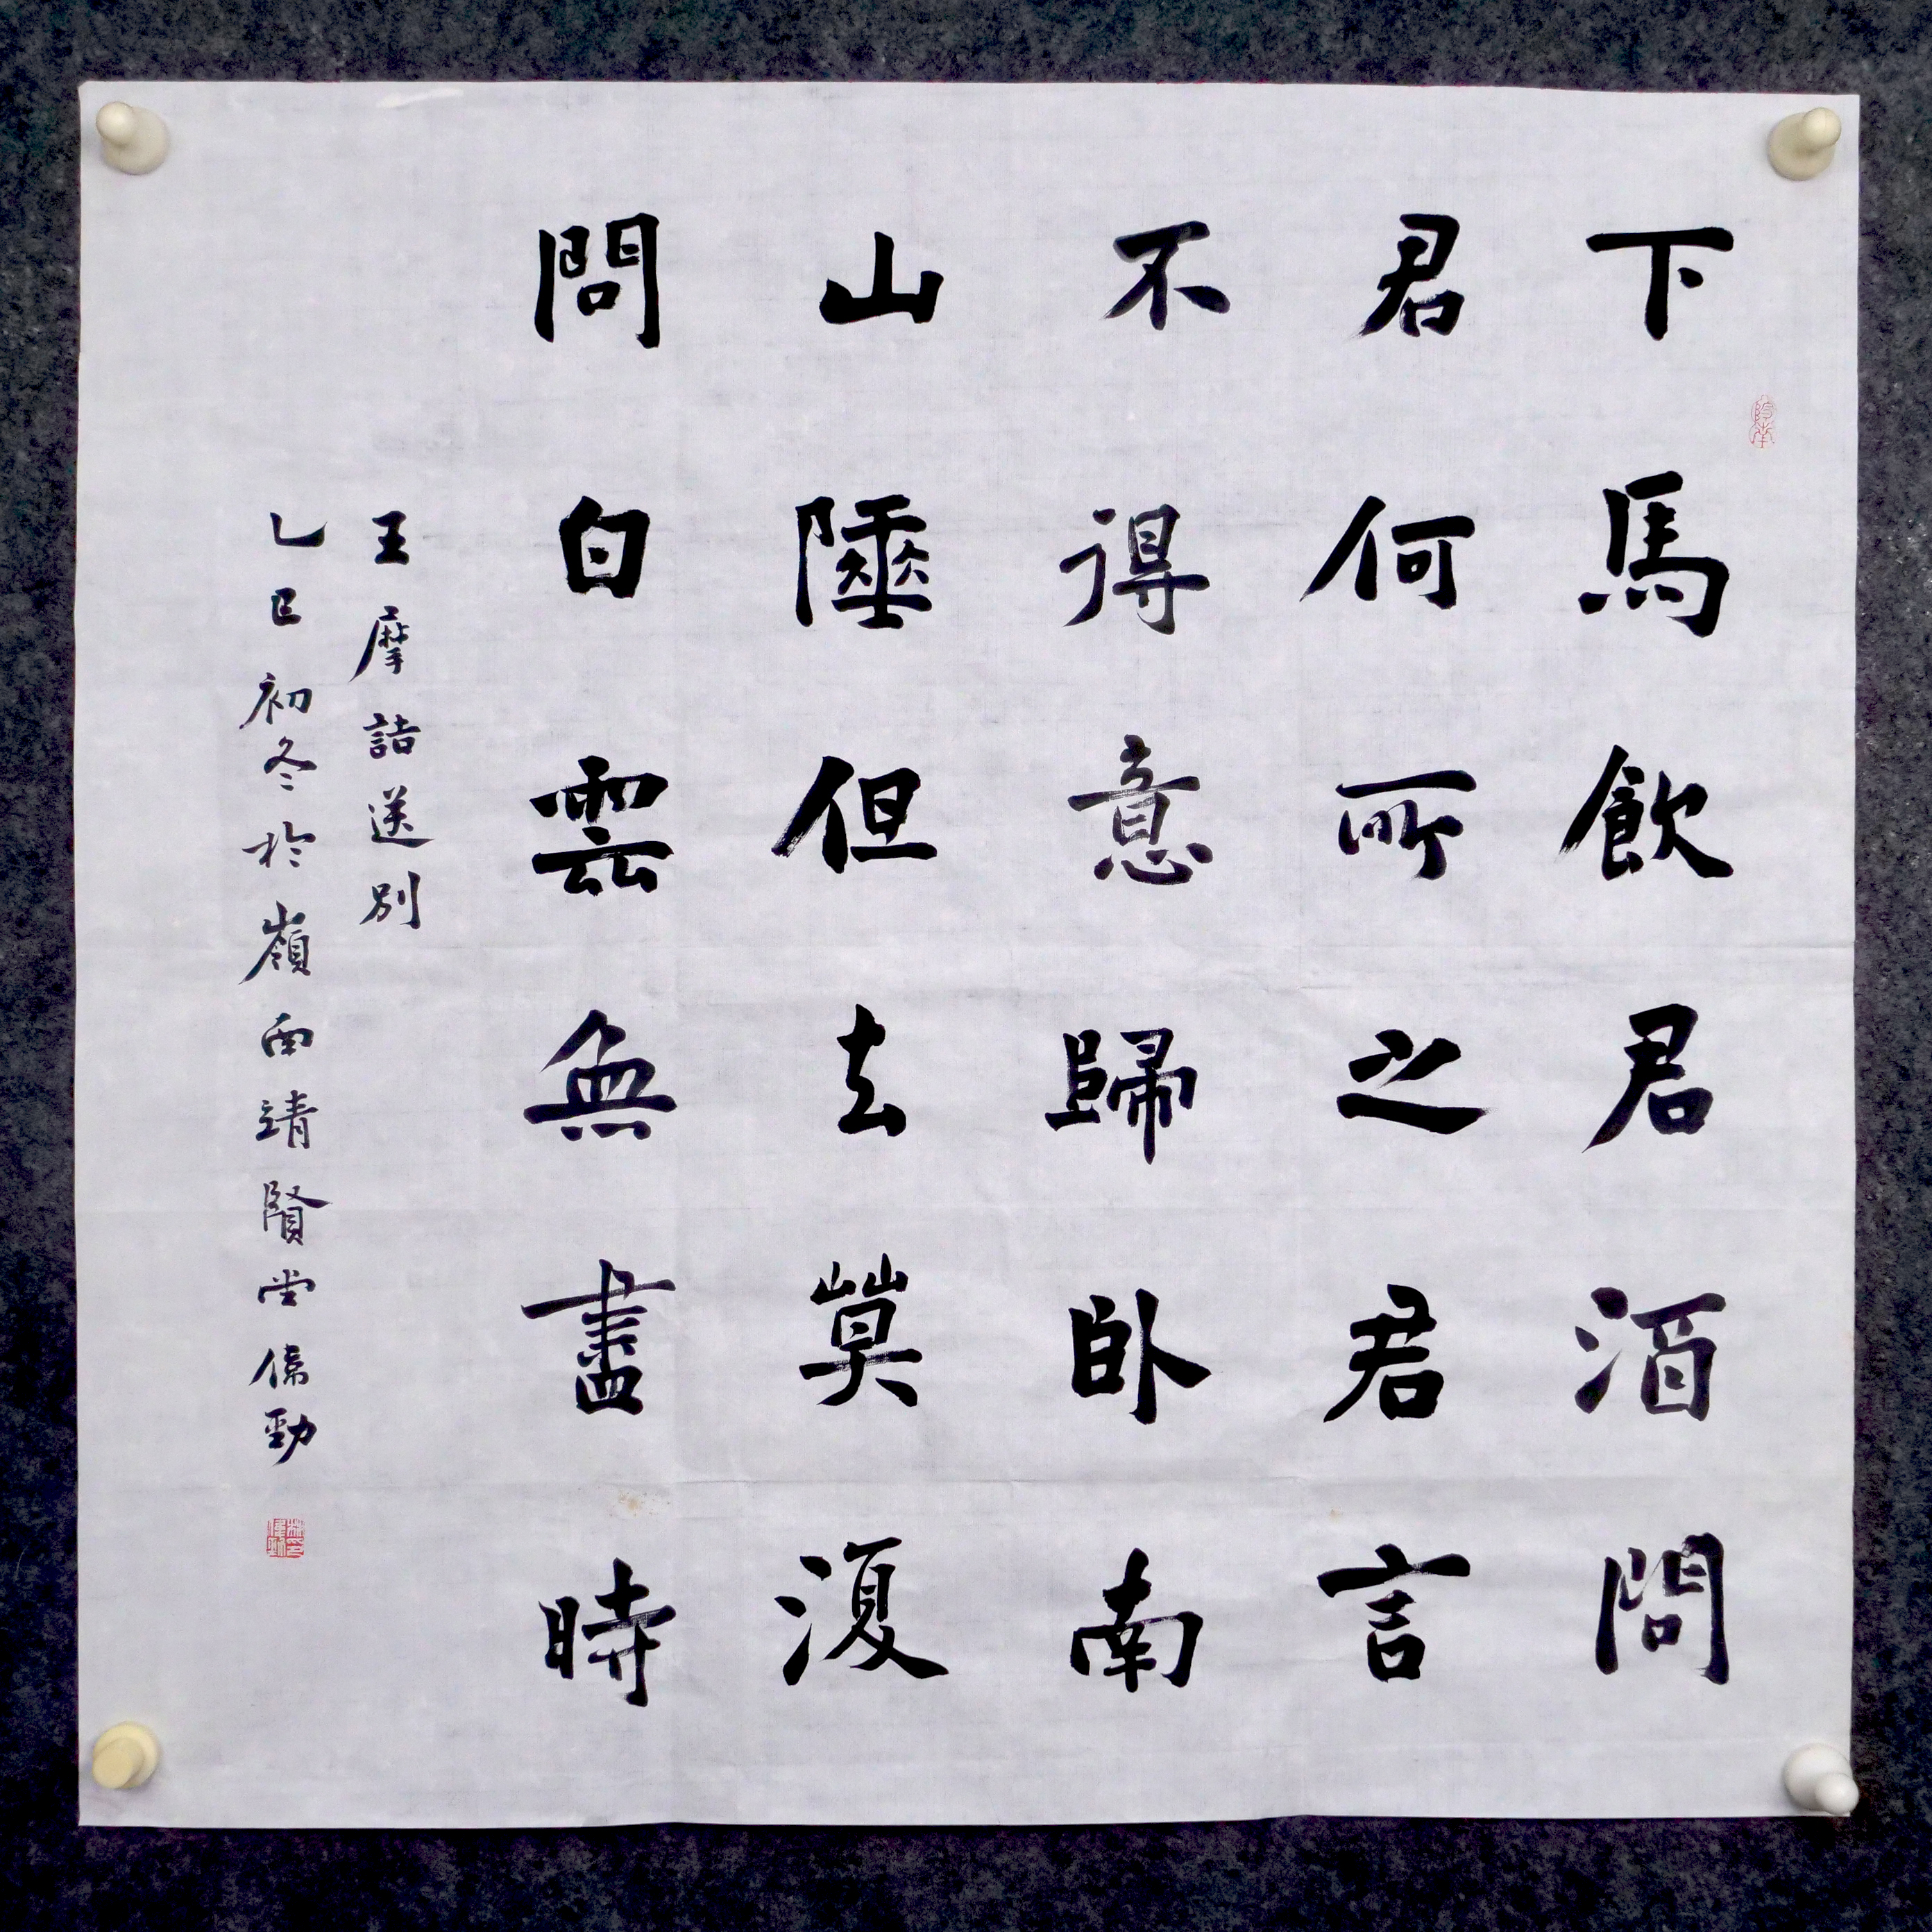 下馬飲君酒問
君何所之君言
不得意歸臥南
山陲但去莫復
問白雲無盡時
王摩詰送別
乙巳初冬於嶺西靖賢堂 勁